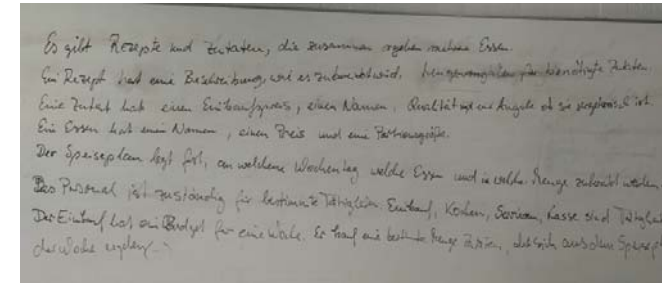 Es gibt Rezepte und Zutaten, die zusammen ergeben mehrere Essen.
Ein Rezept hat eine Beschreibung, wie es zubereitet wird, Mengenangaben für benötigte Zutaten.
Eine Zutat hat einen Einkaufspreis, einen Namen, Qualität und eine Angabe ob sie vegetarisch ist.
Ein Essen hat einen Namen, einen Preis und eine Portionsgröße.
Der Speiseplan legt fest, an welchem Wochentag welche Essen und in welcher Menge zubereitet werden
Das Personal ist zuständig für bestimmte Tätigkeiten. Einkauf, Kochen, Servieren, Kasse sind
Der Einkauf hat ein Budget für eine Woche. Er kauf eine bestimmte Menge Zutaten, die sich aus dem
der Woche ergeben.